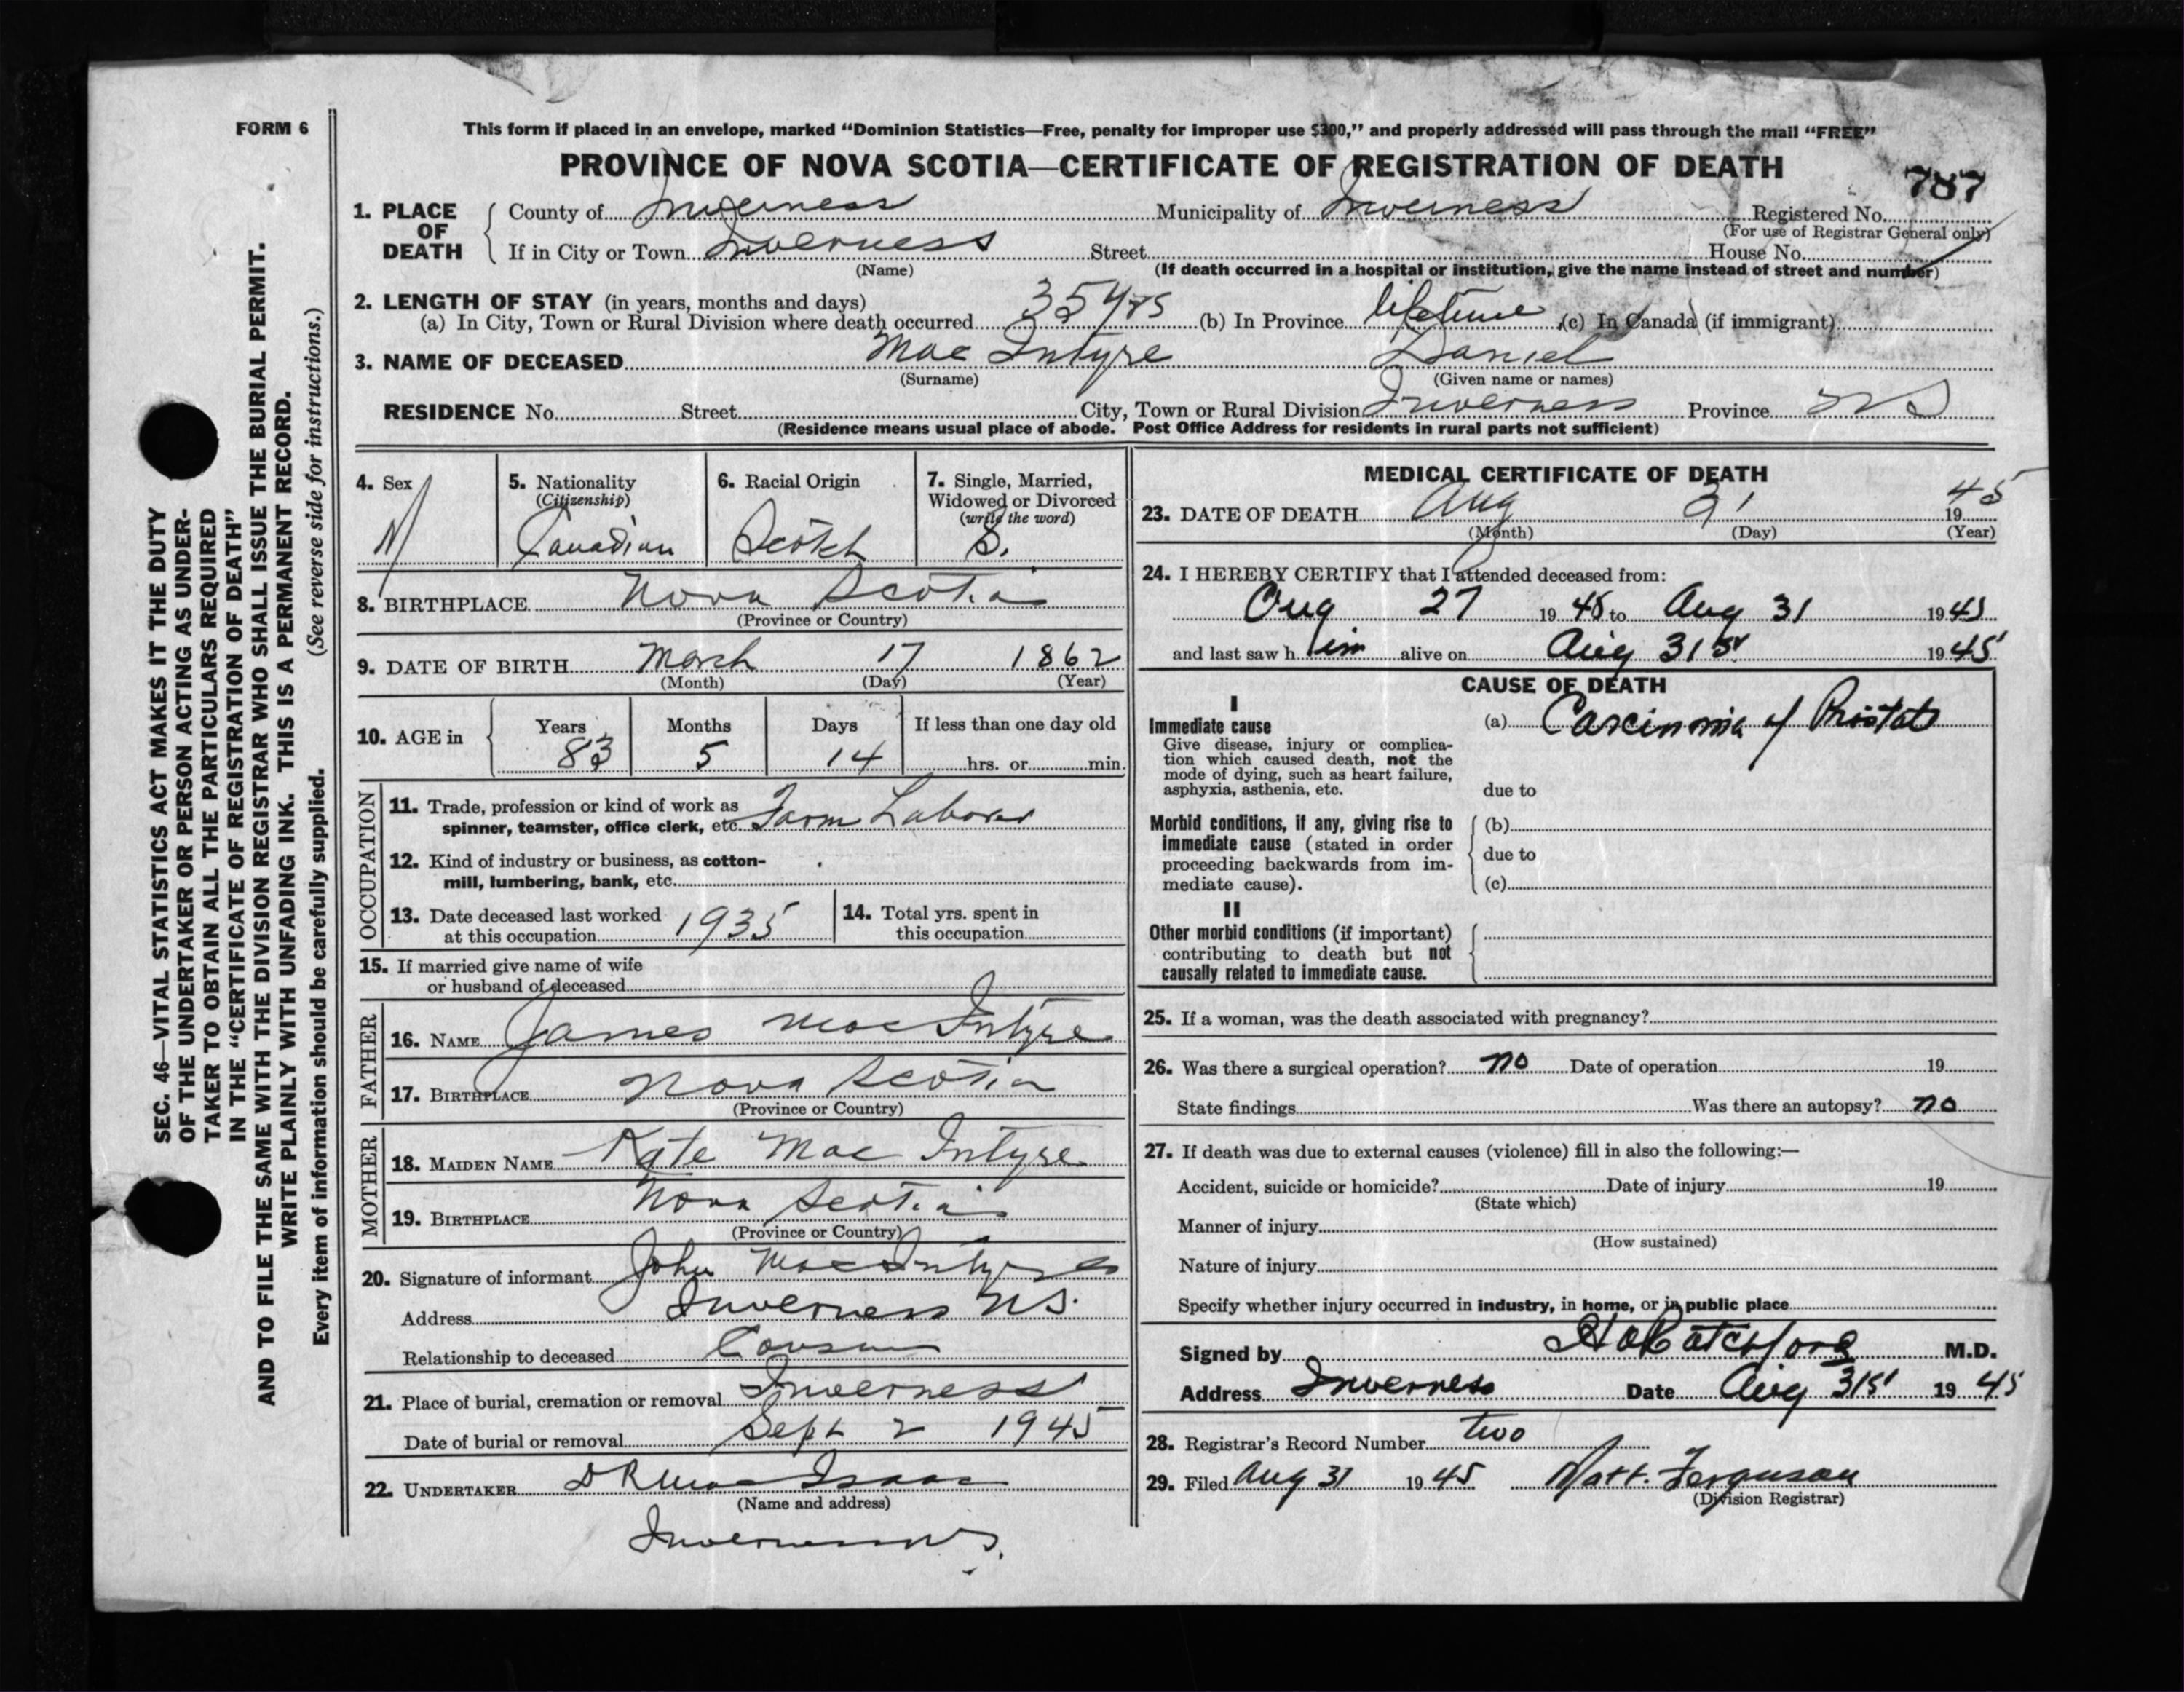 FORM 6
This form if placed in an envelope, marked “Dominion Statistics—Free, penalty for improper use $300,” and properly addressed will pass through the mail “FREE”
PROVINCE OF NOVA SCOTIA—CERTIFICATE OF REGISTRATION OF DEATH
787
1. PLACE OF DEATH
County of Inverness Municipality of Inverness Registered No.
(For use of Registrar General only)
If in City or Town Inverness Street House No.
(Name) (If death occurred in a hospital or institution, give the name instead of street and number)
2. LENGTH OF STAY (in years, months and days)
(a) In City, Town or Rural Division where death occurred 35 yrs (b) In Province lifetime (c) In Canada (if immigrant)
3. NAME OF DECEASED Mac Intyre Daniel
(Surname) (Given name or names)
RESIDENCE No. Street City, Town or Rural Division Inverness Province NS
(Residence means usual place of abode. Post Office Address for residents in rural parts not sufficient)
4. Sex M
5. Nationality (Citizenship) Canadian
6. Racial Origin Scotch
7. Single, Married, Widowed or Divorced (write the word) S.
8. BIRTHPLACE Nova Scotia
(Province or Country)
9. DATE OF BIRTH March 17 1862
(Month) (Day) (Year)
10. AGE in Years 83 Months 5 Days 14 If less than one day old
hrs. or min.
OCCUPATION
11. Trade, profession or kind of work as
spinner, teamster, office clerk, etc. Farm Laborer
12. Kind of industry or business, as cotton-
mill, lumbering, bank, etc.
13. Date deceased last worked
at this occupation 1935
14. Total yrs. spent in
this occupation
15. If married give name of wife
or husband of deceased
FATHER
16. NAME James Mac Intyre
17. BIRTHPLACE Nova Scotia
(Province or Country)
MOTHER
18. MAIDEN NAME Kate Mac Intyre
19. BIRTHPLACE Nova Scotia
(Province or Country)
20. Signature of informant John MacIntyre
Address Inverness NS.
Relationship to deceased Cousin
21. Place of burial, cremation or removal Inverness
Date of burial or removal Sept 2 1945
22. UNDERTAKER D R Mac Isaac
(Name and address)
Inverness NS.
MEDICAL CERTIFICATE OF DEATH
23. DATE OF DEATH Aug 31 1945
(Month) (Day) (Year)
24. I HEREBY CERTIFY that I attended deceased from:
Aug 27 1945 to Aug 31 1945
and last saw him alive on Aug 31st 1945
CAUSE OF DEATH
I
Immediate cause (a) Carcinoma of Prostate
Give disease, injury or complica-
tion which caused death, not the
mode of dying, such as heart failure,
asphyxia, asthenia, etc. due to
Morbid conditions, if any, giving rise to (b)
immediate cause (stated in order
proceeding backwards from im- due to
mediate cause). (c)
II
Other morbid conditions (if important)
contributing to death but not
causally related to immediate cause.
25. If a woman, was the death associated with pregnancy?
26. Was there a surgical operation? no Date of operation 19
State findings Was there an autopsy? no
27. If death was due to external causes (violence) fill in also the following:—
Accident, suicide or homicide? Date of injury 19
(State which)
Manner of injury
(How sustained)
Nature of injury
Specify whether injury occurred in industry, in home, or in public place
Signed by M.D.
Address Inverness Date Aug 31st 1945
28. Registrar's Record Number two
29. Filed Aug 31 1945 Matt. Ferguson
(Division Registrar)
SEC. 46—VITAL STATISTICS ACT MAKES IT THE DUTY
OF THE UNDERTAKER OR PERSON ACTING AS UNDER-
TAKER TO OBTAIN ALL THE PARTICULARS REQUIRED
IN THE “CERTIFICATE OF REGISTRATION OF DEATH”
AND TO FILE THE SAME WITH THE DIVISION REGISTRAR WHO SHALL ISSUE THE BURIAL PERMIT.
WRITE PLAINLY WITH UNFADING INK. THIS IS A PERMANENT RECORD.
Every item of information should be carefully supplied. (See reverse side for instructions.)